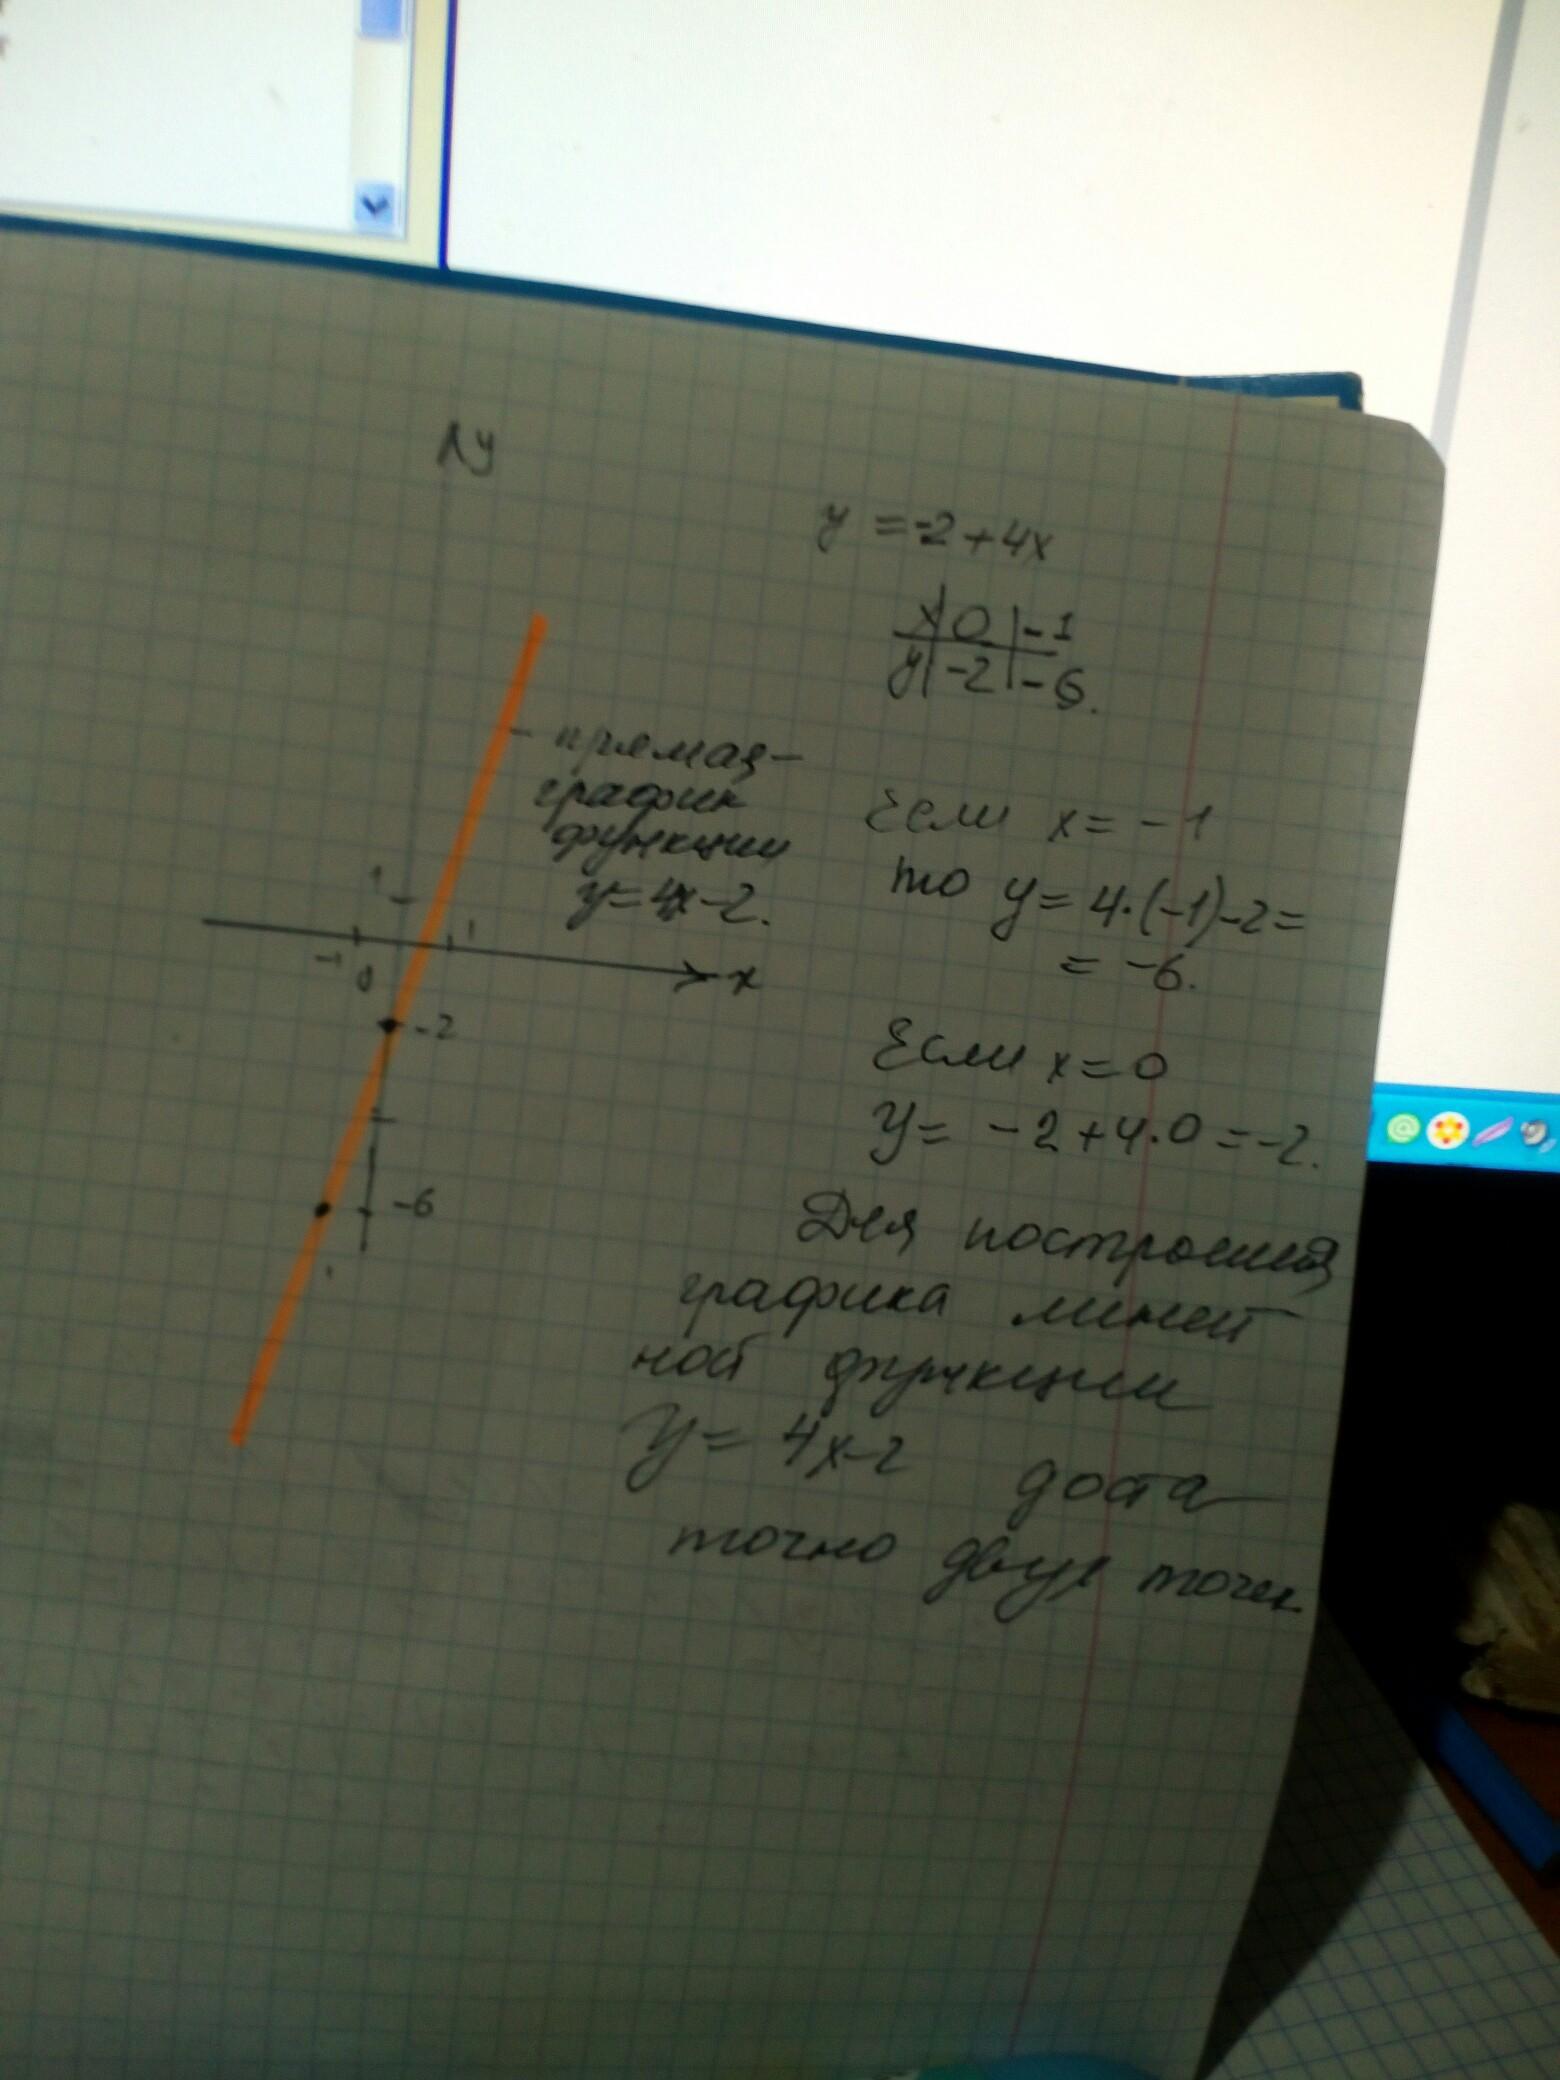 y
y = -2 + 4x
x | 0 | -1
y | -2 | -6.
- прямая -
график
функции
y = 4x - 2.
Если x = -1
то y = 4·(-1) - 2 =
= -6.
Если x = 0
y = -2 + 4·0 = -2.
1
-1
0
1
x
-2
-6
Для построения
графика линей
ной функции
y = 4x - 2 доста
точно двух точек